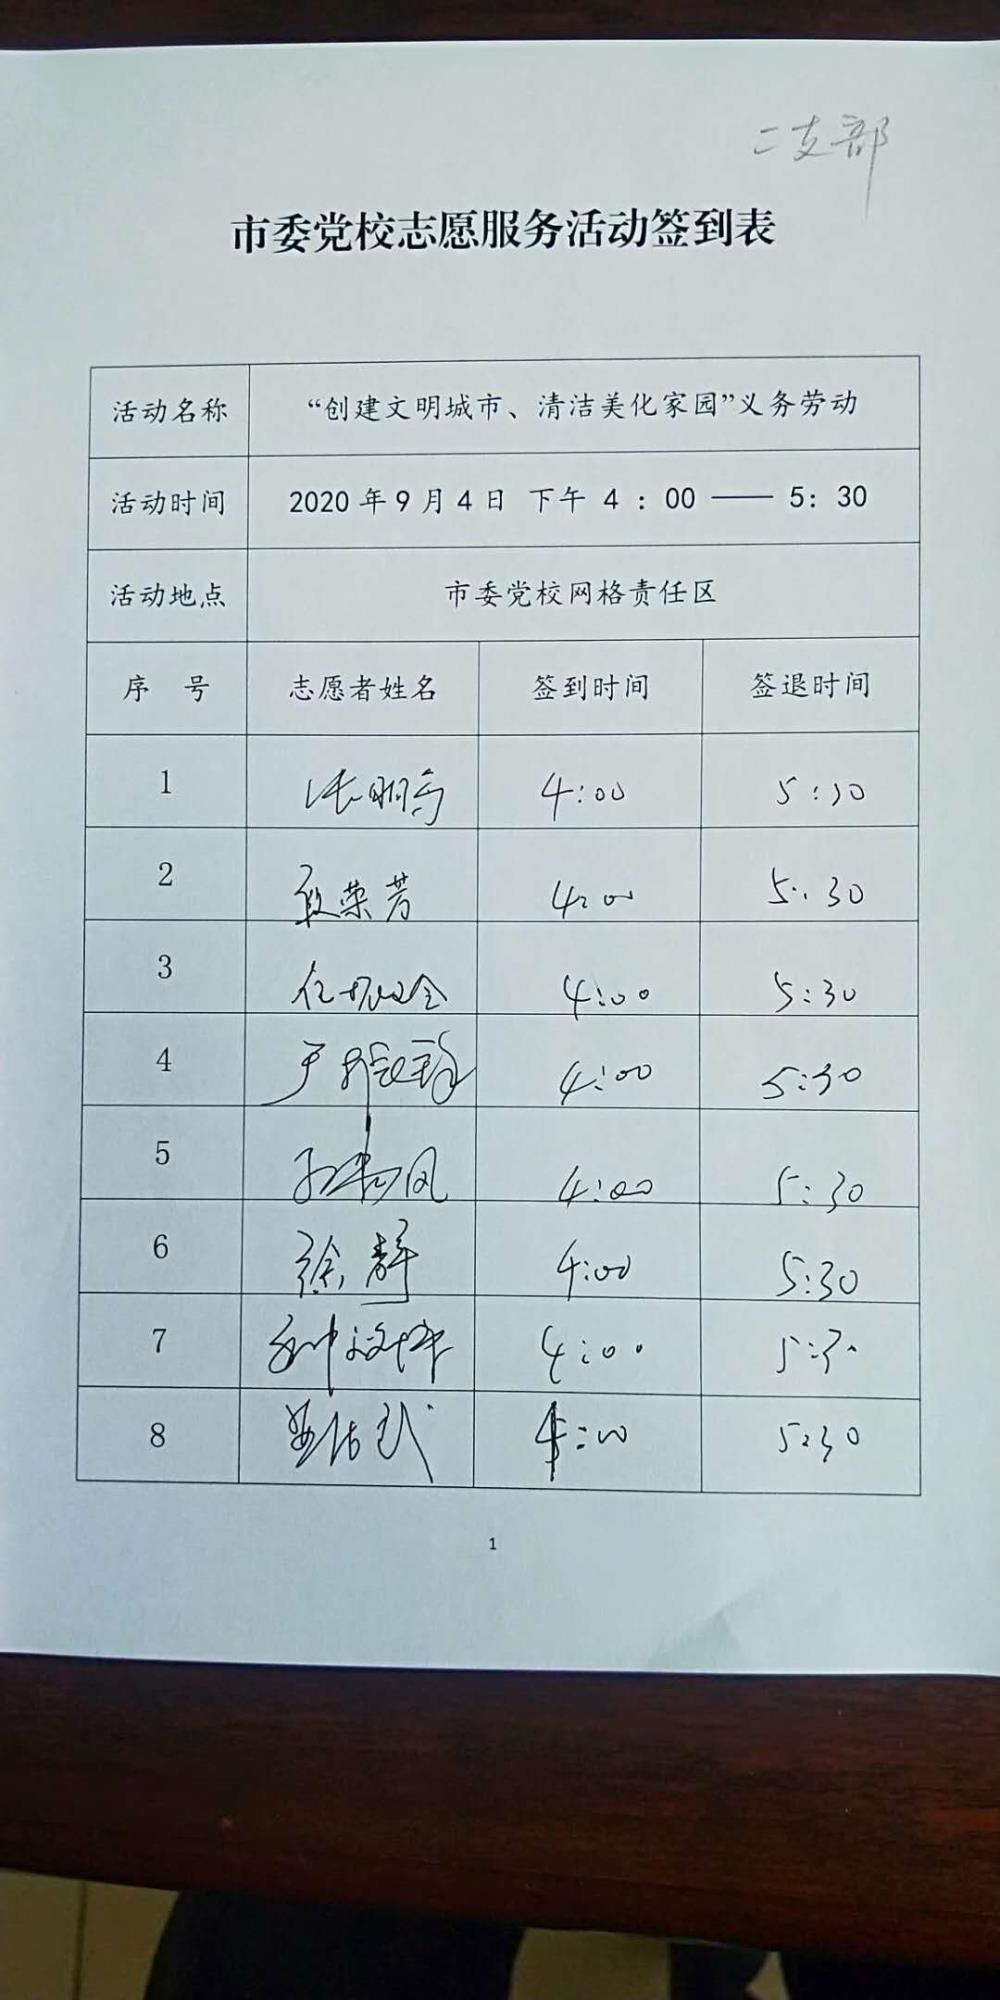 二支部
市委党校志愿服务活动签到表
活动名称 “创建文明城市、清洁美化家园”义务劳动
活动时间 2020年9月4日 下午 4：00 —— 5：30
活动地点 市委党校网格责任区
序 号 志愿者姓名 签到时间 签退时间
1 4:00 5:30
2 段荣芳 4:00 5:30
3 4:00 5:30
4 4:00 5:30
5 4:00 5:30
6 徐静 4:00 5:30
7 4:00 5:30
8 4:00 5:30
1